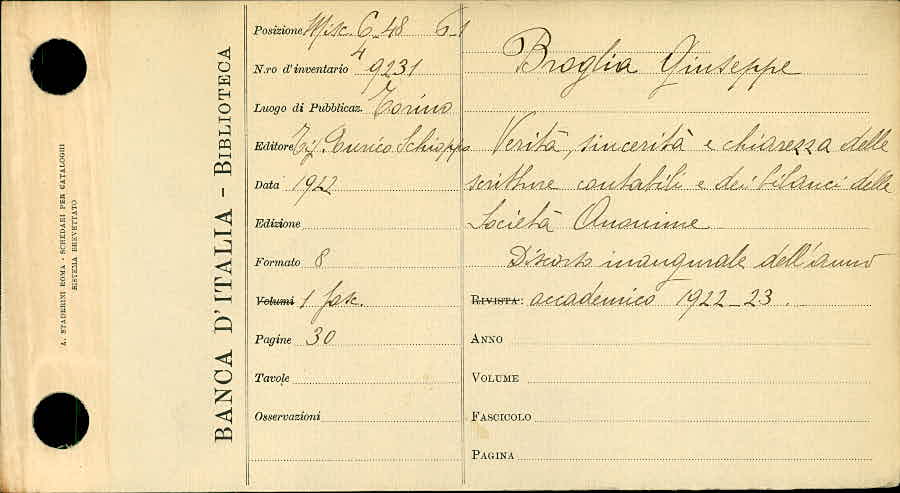 A. STADERINI ROMA - SCHEDARI PER CATALOGHI
SISTEMA BREVETTATO
BANCA D'ITALIA - BIBLIOTECA
Posizione Misc. C_48 6_1
4
N.ro d'inventario 9231
Luogo di Pubblicaz. Torino
Editore Tip. Enrico Schioppo
Data 1922
Edizione
Formato 8
Volumi 1 fasc.
Pagine 30
Tavole
Osservazioni
Broglia Giuseppe
Verità, sincerità e chiarezza delle
scritture contabili e dei bilanci delle
Società Anonime
Discorso inaugurale dell'anno
RIVISTA: accademico 1922_23.
ANNO
VOLUME
FASCICOLO
PAGINA